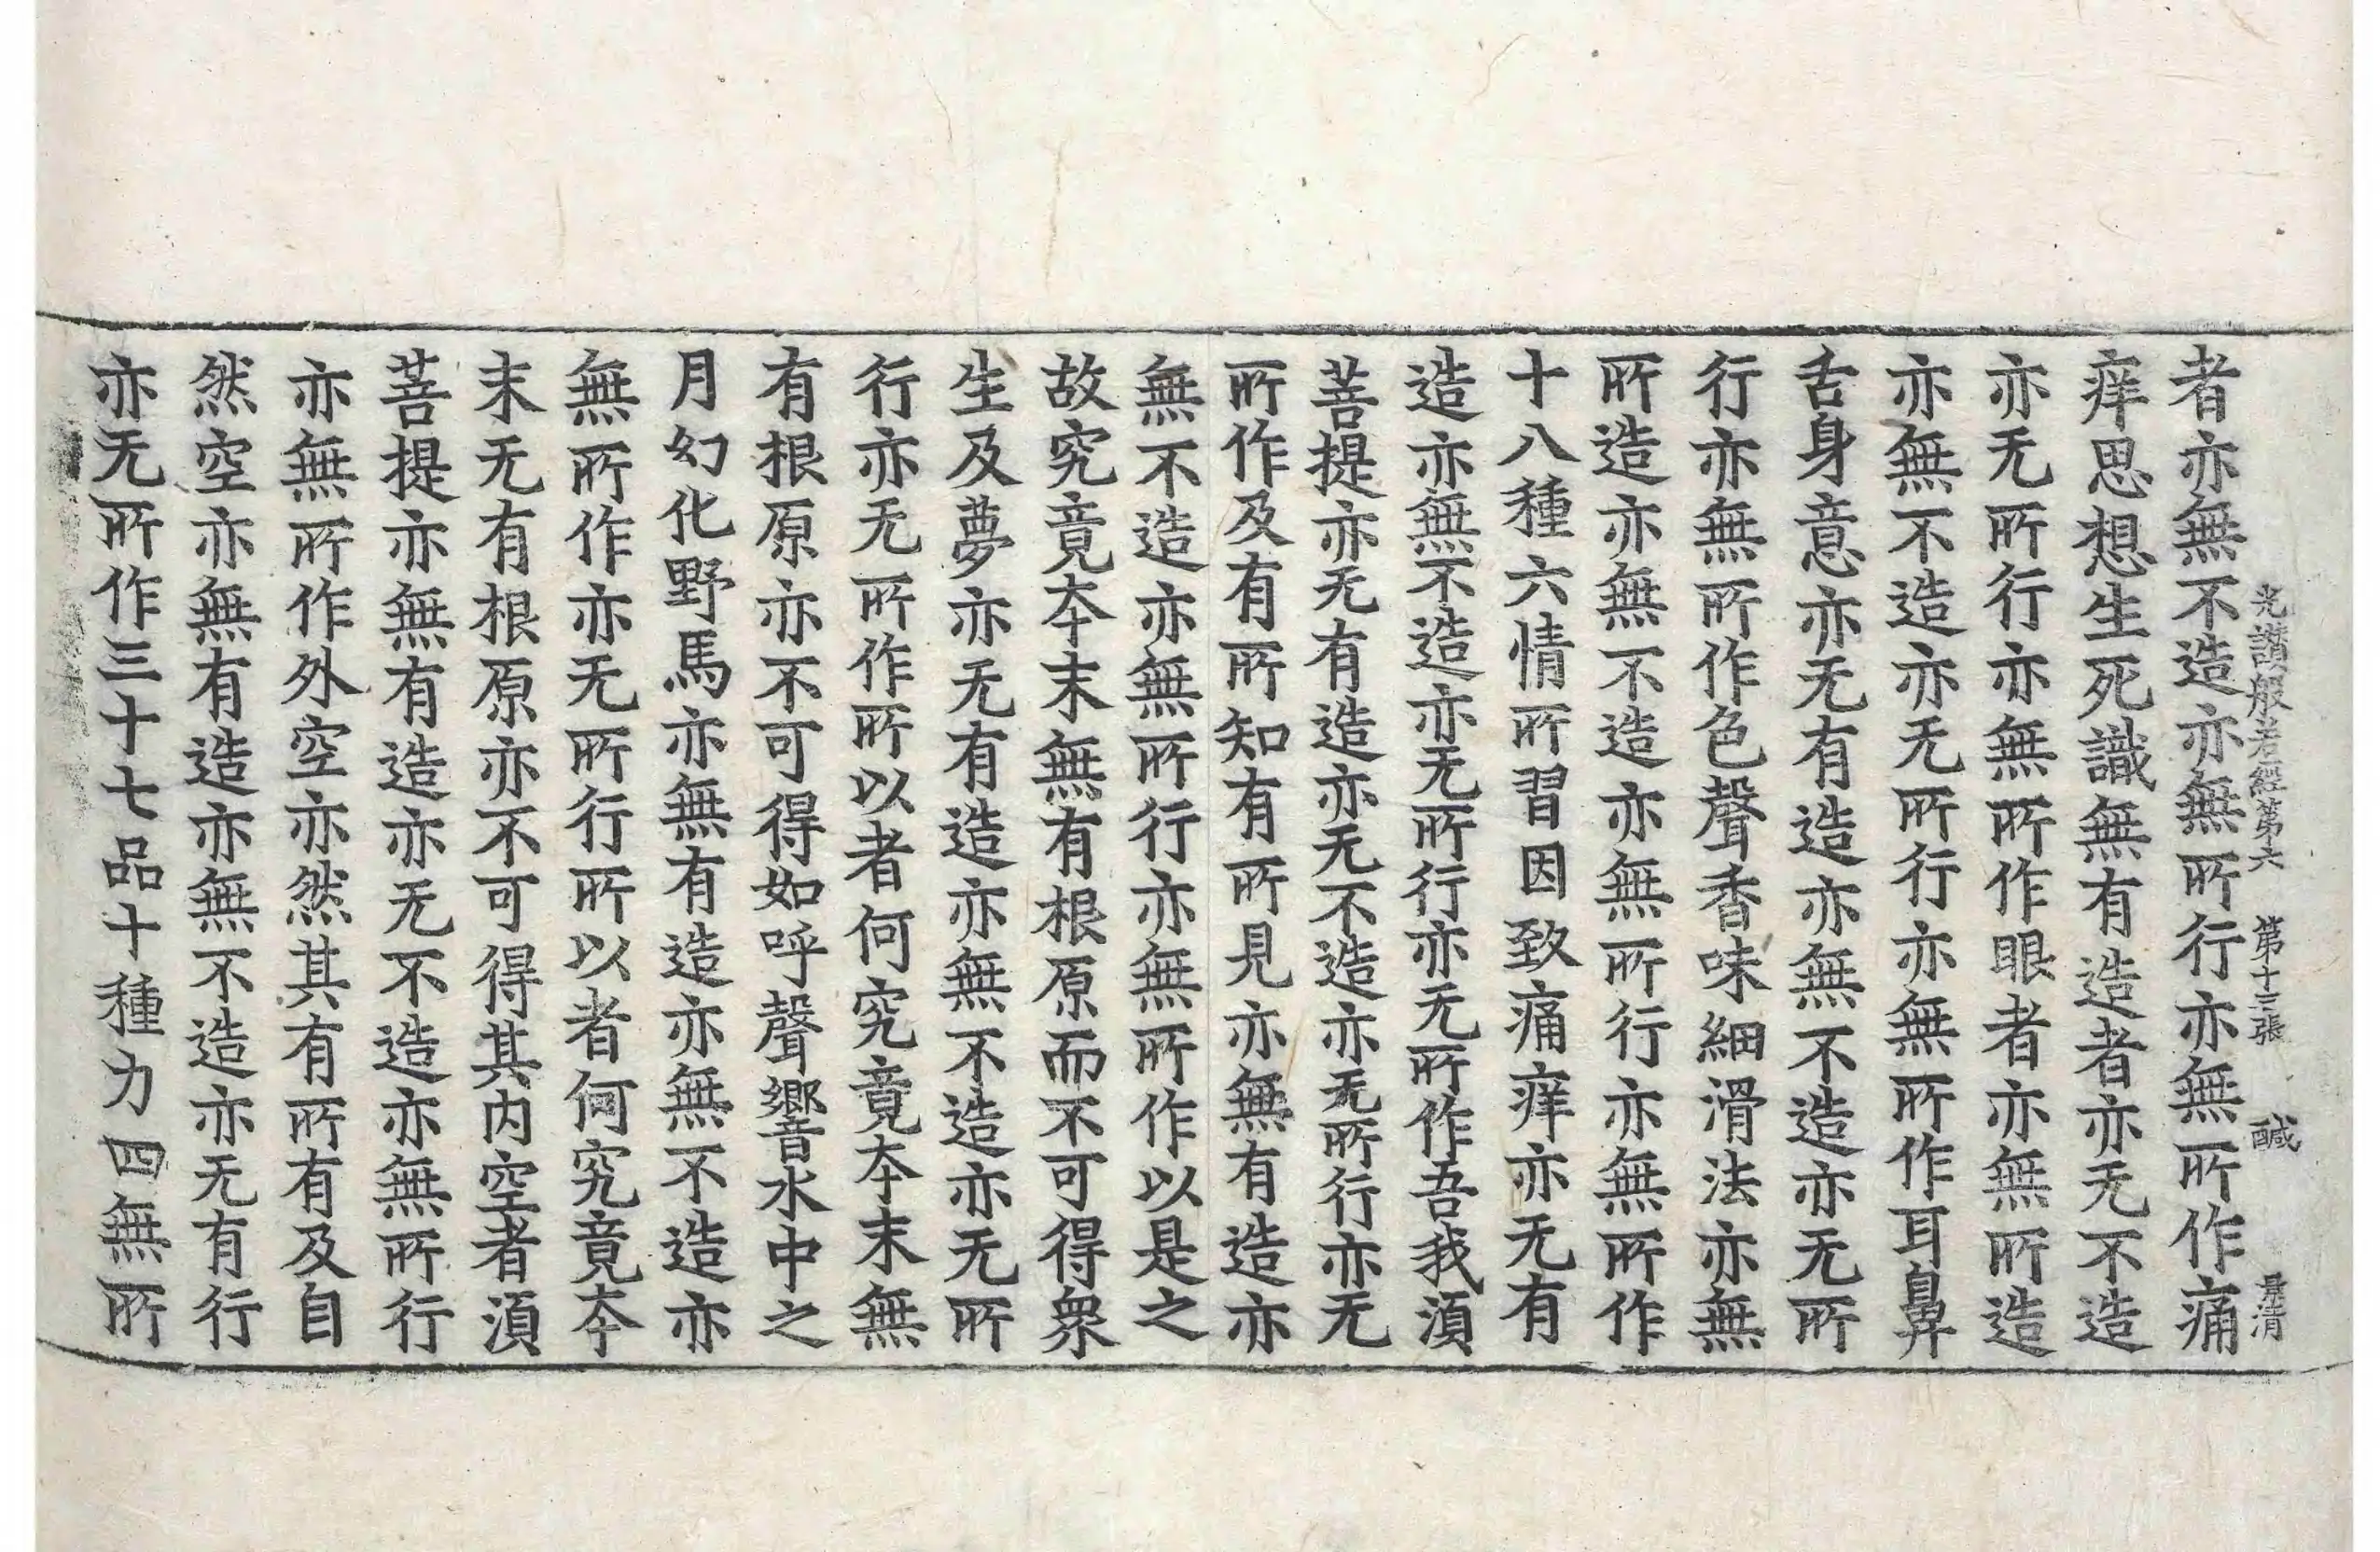 光讚般若經第六 第十三張 醎 景清
者亦無不造亦無所行亦無所作痛
痒思想生死識無有造者亦无不造
亦无所行亦無所作眼者亦無所造
亦無不造亦无所行亦無所作耳鼻
舌身意亦无有造亦無不造亦无所
行亦無所作色聲香味細滑法亦無
所造亦無不造亦無所行亦無所作
十八種六情所習因致痛痒亦无有
造亦無不造亦无所行亦无所作吾我湏
菩提亦无有造亦无不造亦无所行亦无
所作及有所知有所見亦無有造亦
無不造亦無所行亦無所作以是之
故究竟夲末無有根原而不可得衆
生及夢亦无有造亦無不造亦无所
行亦无所作所以者何究竟夲末無
有根原亦不可得如呼聲響水中之
月幻化野馬亦無有造亦無不造亦
無所作亦无所行所以者何究竟夲
末无有根原亦不可得其内空者湏
菩提亦無有造亦无不造亦無所行
亦無所作外空亦然其有所有及自
然空亦無有造亦無不造亦无有行
亦无所作三十七品十種力四無所